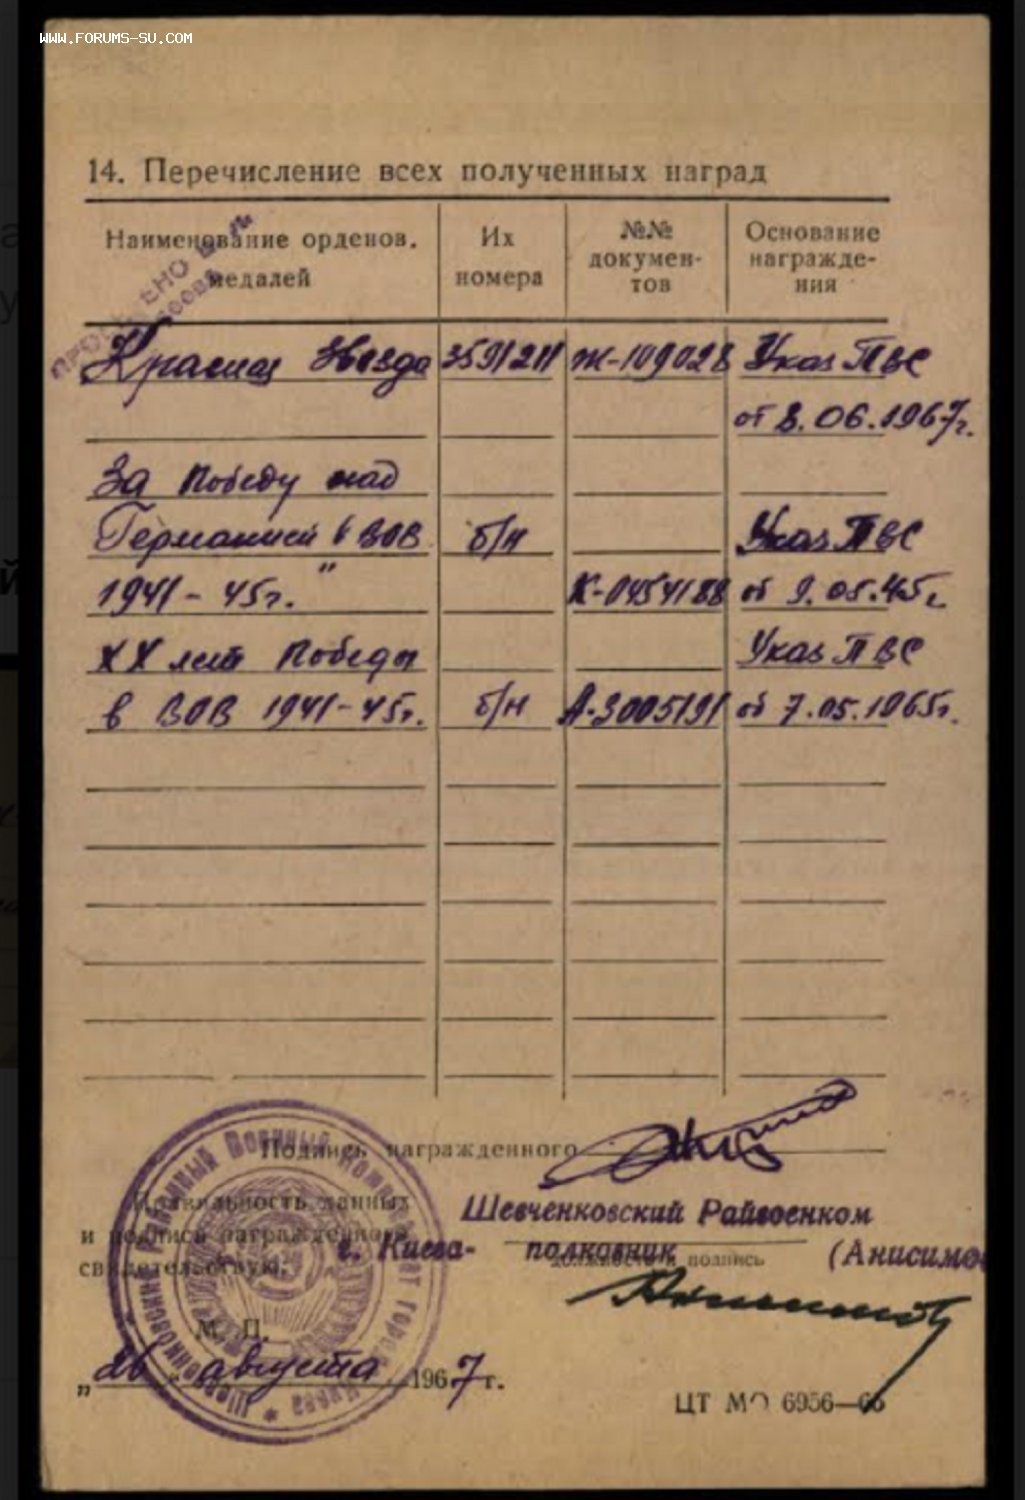 WWW.FORUMS-SU.COM
14. Перечисление всех полученных наград
Наименование орденов, медалей
Их номера
№№ докумен-тов
Основание награжде-ния
Красная Звезда 3591211 Ж-109028 Указ ПВС
от 8.06.1967г.
За Победу над
Германией в ВОВ б/н Указ ПВС
1941-45г." К-0454188 от 9.05.45г.
XX лет Победы Указ ПВС
в ВОВ 1941-45г. б/н А-3005191 от 7.05.1965г.
Подпись награжденного
Правильность данных
и подписи награжденного
свидетельствую:
Шевченковский Райвоенком
г. Киева- полковник (Анисимо
должность и подпись
М. П.
„26" августа 1967 г.
ЦТ МО 6956—66